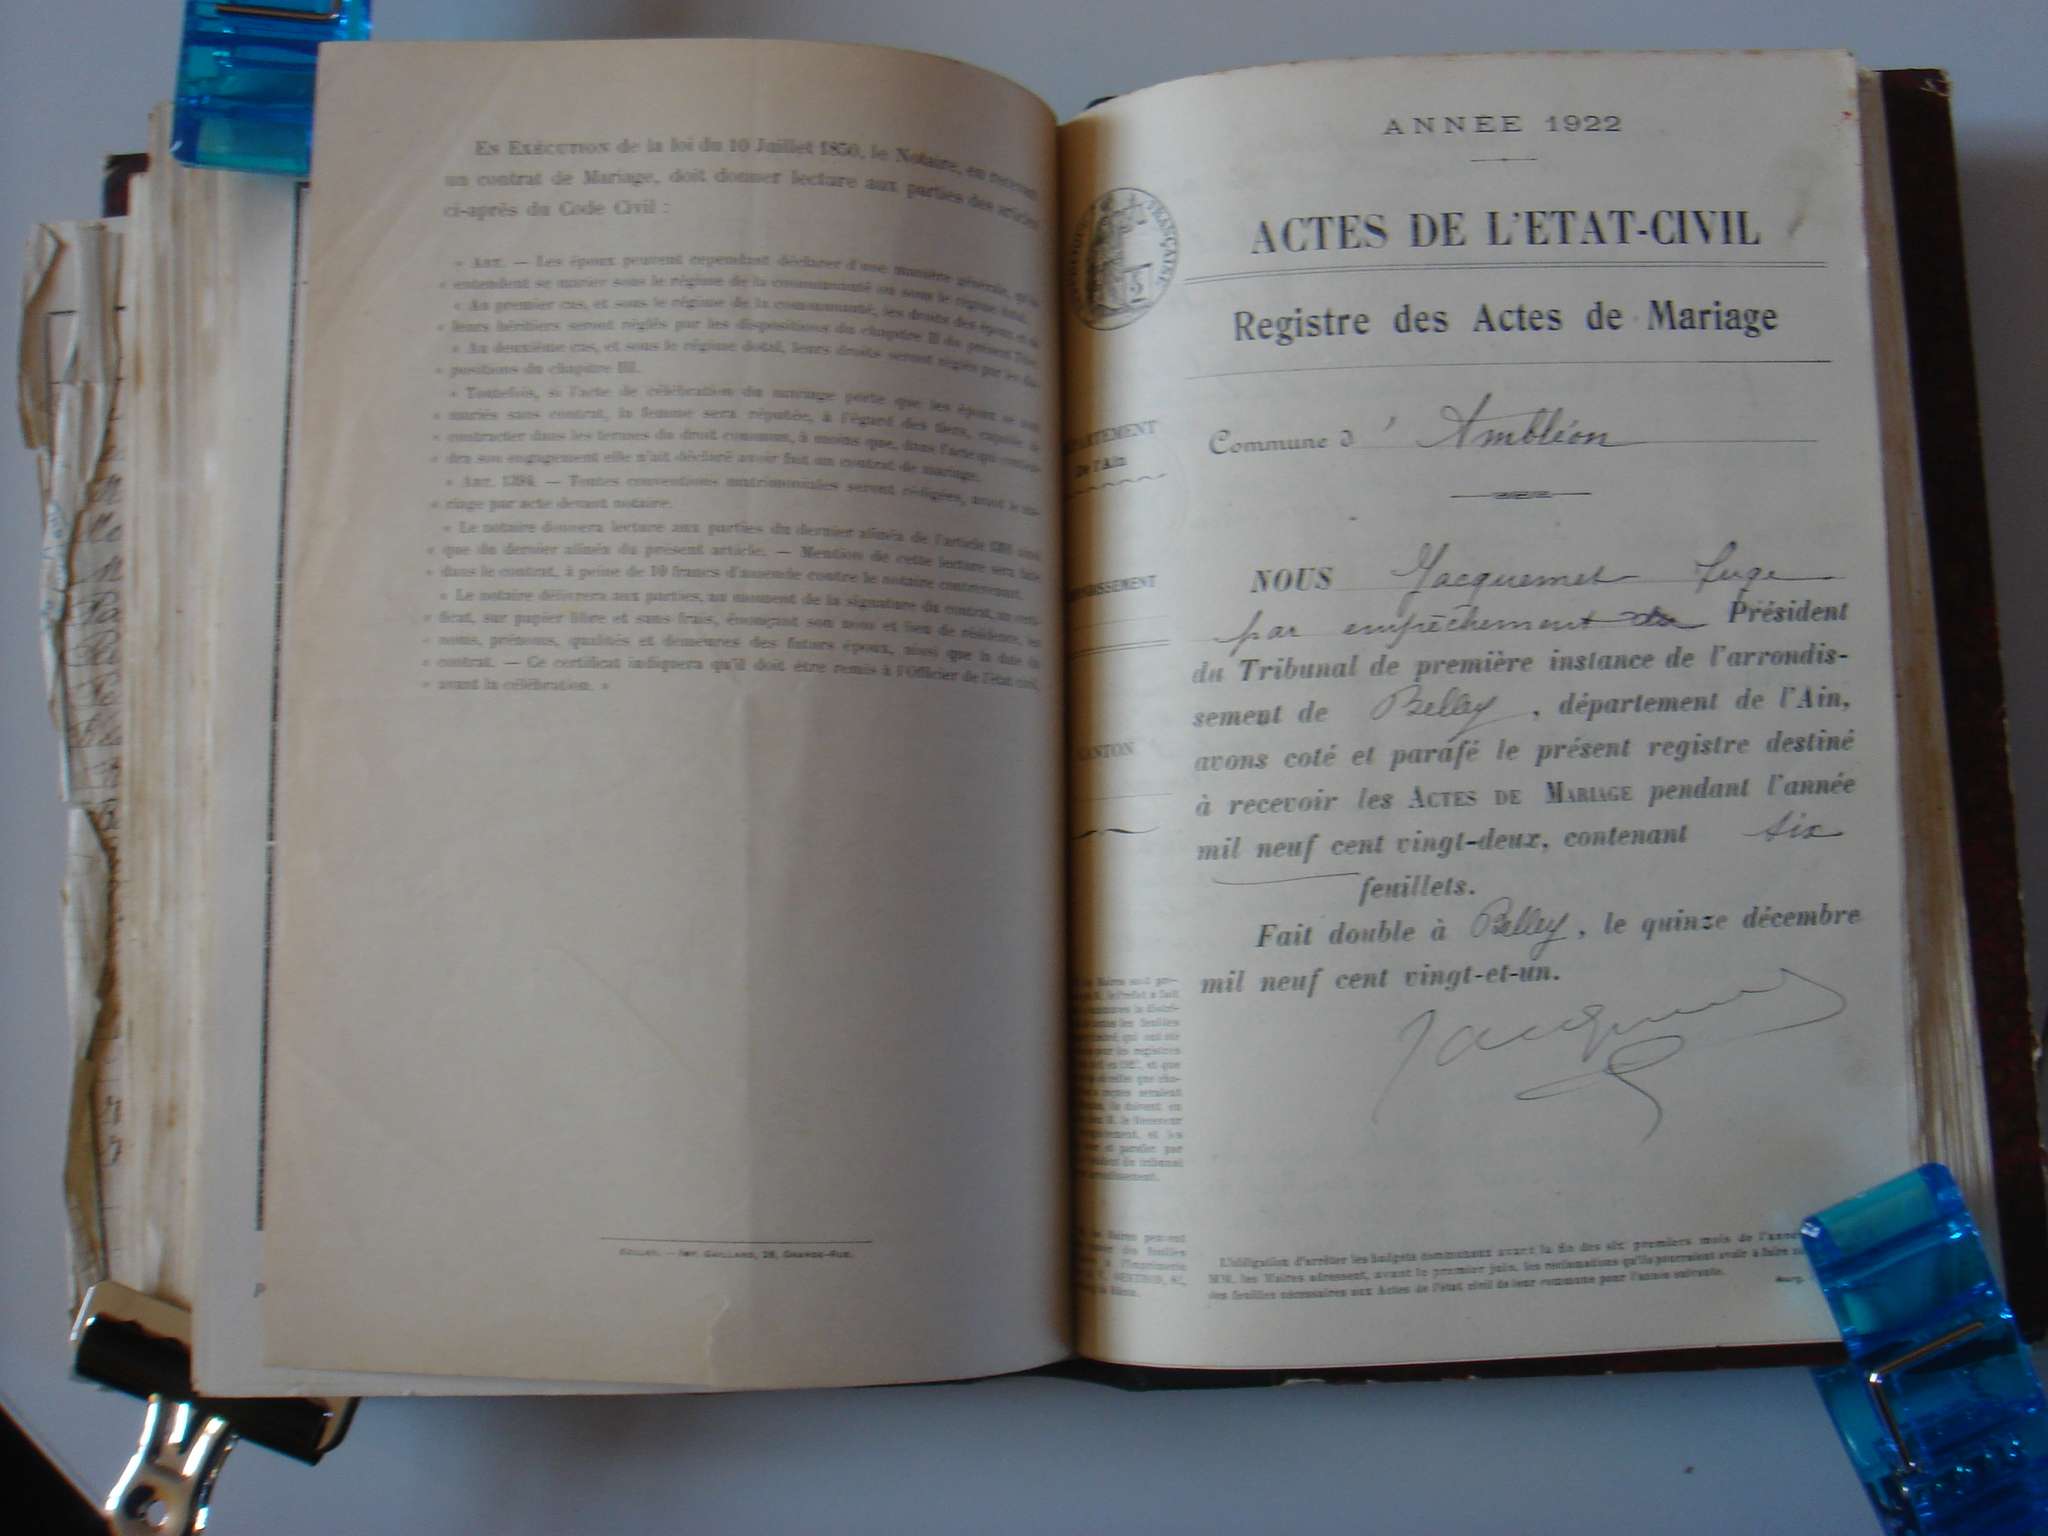 En Exécution de la loi du 10 Juillet 1850, le Notaire, en recevant
un contrat de Mariage, doit donner lecture aux parties des articles
ci-après du Code Civil :
« Art. — Les époux peuvent cependant déclarer d'une manière générale, qu'ils
« entendent se marier sous le régime de la communauté ou sous le régime dotal.
« Au premier cas, et sous le régime de la communauté, les droits des époux et de
« leurs héritiers seront réglés par les dispositions du chapitre II du présent Titre.
« Au deuxième cas, et sous le régime dotal, leurs droits seront réglés par les dis-
« positions du chapitre III.
« Toutefois, si l'acte de célébration du mariage porte que les époux se sont
« mariés sans contrat, la femme sera réputée, à l'égard des tiers, capable de
« contracter dans les termes du droit commun, à moins que, dans l'acte qui contien-
« dra son engagement elle n'ait déclaré avoir fait un contrat de mariage.
« Art. 1394. — Toutes conventions matrimoniales seront rédigées, avant le ma-
« riage par acte devant notaire.
« Le notaire donnera lecture aux parties du dernier alinéa de l'article 1391 ainsi
« que du dernier alinéa du présent article. — Mention de cette lecture sera faite
« dans le contrat, à peine de 10 francs d'amende contre le notaire contrevenant.
« Le notaire délivrera aux parties, au moment de la signature du contrat, un certi-
« ficat, sur papier libre et sans frais, énonçant son nom et lieu de résidence, les
« noms, prénoms, qualités et demeures des futurs époux, ainsi que la date du
« contrat. — Ce certificat indiquera qu'il doit être remis à l'Officier de l'état civil,
« avant la célébration. »
Imp. Gaillard, 28, Grande-Rue.
ANNÉE 1922
FRANÇAISE
ACTES DE L'ETAT-CIVIL
Registre des Actes de Mariage
De l'Ain
Commune d'Ambléon
NOUS Jacquemet Juge
par empêchement du Président
du Tribunal de première instance de l'arrondis-
sement de Belley, département de l'Ain,
avons coté et parafé le présent registre destiné
à recevoir les Actes de Mariage pendant l'année
mil neuf cent vingt-deux, contenant six
feuillets.
Fait double à Belley, le quinze décembre
mil neuf cent vingt-et-un.
L'obligation d'arrêter les budgets communaux avant la fin des six premiers mois de l'anné
MM. les Maires adressent, avant le premier juin, les réclamations qu'ils pourraient avoir à faire
des feuilles nécessaires aux Actes de l'état civil de leur commune pour l'année suivante.